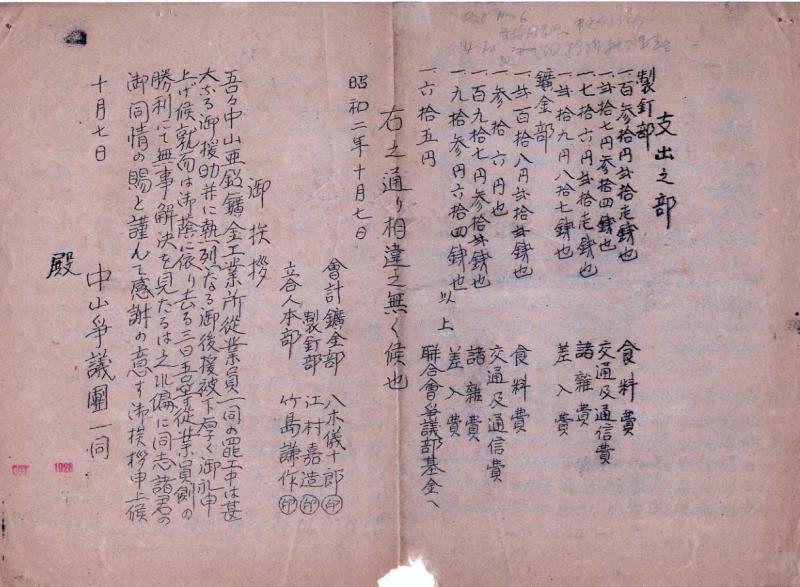 支出之部
製釘部
一、百参拾円弐拾壱銭也 食料費
一、弐拾七円参拾四銭也 交通及通信費
一、七拾六円弐拾壱銭也 諸雑費
一、弐拾九円八拾七銭也 差入費
鑛金部
一、弐百拾八円弐拾銭也 食料費
一、参拾六円也 交通及通信費
一、百九拾七円参拾弐銭也 諸雑費
一、九拾参円六拾四銭也 差入費
一、六拾五円 聯合會爭議部基金へ
以上
右之通り相違之無く候也
昭和二年十月七日
會計鑛金部 八木儀十郎 印
製釘部 江村嘉造 印
立合人本部 竹島謙作 印
御挨拶
吾々中山亜鉛鑛金工業所従業員一同の罷工中は甚
大なる御援助并に熱烈なる御後援被下厚く御礼申
上げ候就而は御蔭に依り去る三日五名従業員側の
勝利にて無事解決を見たるは之れ偏に同志諸君の
御同情の賜と謹んで感謝の意す御挨拶申上候
十月七日
中山爭議團一同
殿
OCT 1928